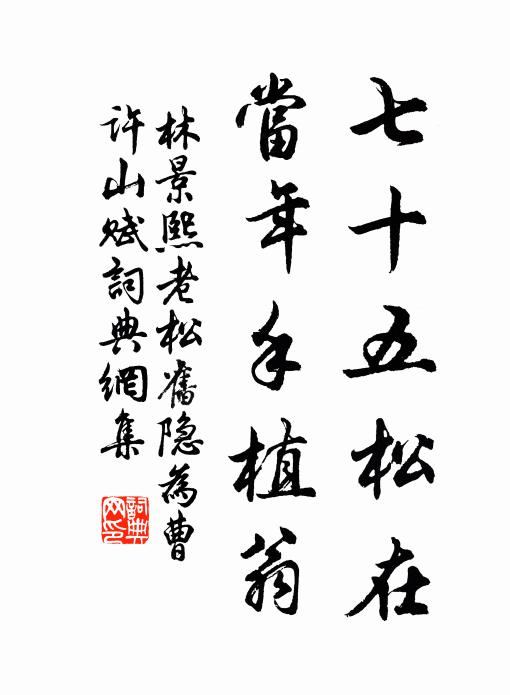 七十五松在
當年手植翁
林景熙老松舊隐為曹
許山賦詞典網集
詞典網印